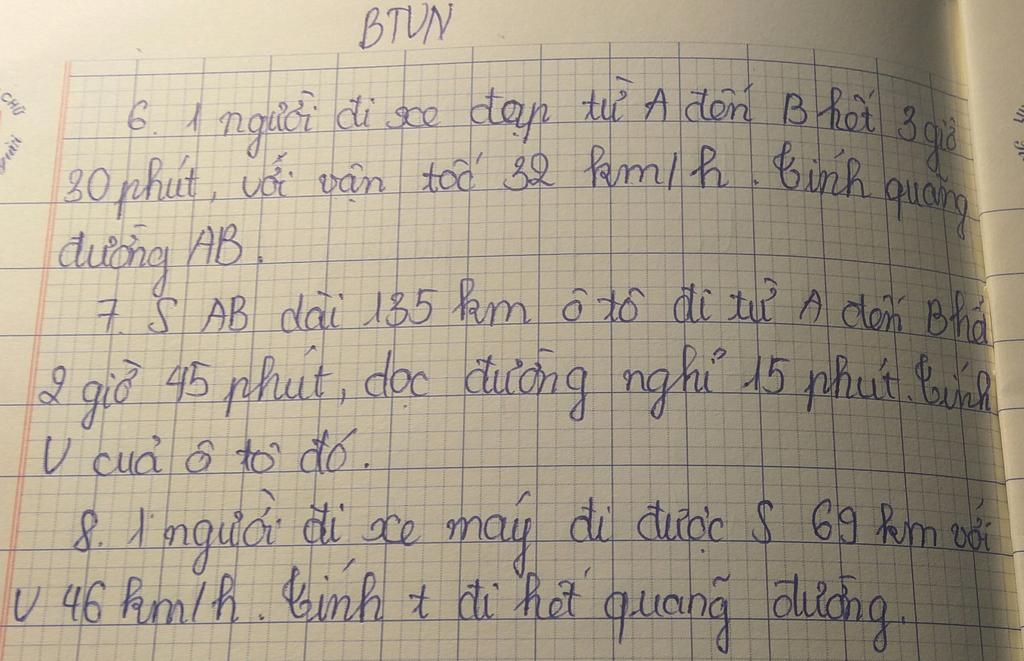 BTVN
6. 1 người đi xe đạp từ A đến B hết 3 giờ
30 phút, với vận tốc 32 km/h. Tính quãng
đường AB.
7. S AB dài 135 km ô tô đi từ A đến B hế
2 giờ 45 phút, dọc đường nghỉ 15 phút. Tính
V của ô tô đó.
8. 1 người đi xe máy đi được S 69 km với
V 46 km/h. Tính t đi hết quãng đường.